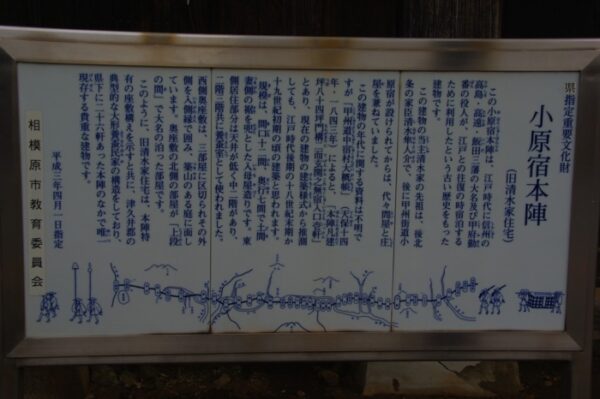 県指定重要文化財
小原宿本陣
（旧清水家住宅）
この小原宿本陣は、江戸時代に信州の
高島・高遠・飯田三藩の大名及び甲府勤
番の役人が、江戸との往復の時宿泊する
ために利用したという古い歴史をもった
建物です。
この建物の当主清水家の先祖は、後北
条の家臣清水隼人介で、後に甲州街道小
原宿が設けられてからは、代々問屋と庄
屋を兼ねていました。
この建物の年代に関する資料は不明で
すが「甲州道中宿村大概帳」（天保十四
年・一八四三年）によると、「本陣凡建
坪八十四坪門構
とあり、現在の建物の建築様式から推測
しても、江戸時代後期の十八世紀末期か
十九世紀初期の頃の建物と思われます。
規模は、間口十二間、奥行七間で土間
妻側の裾を兜とした入母屋造りです。東
側居住部分は天井が低く中二階があり、
二階、三階共に養蚕室として使われました。
西側奥座敷は、三部屋に区切られその外
側を入側縁で囲み、築山のある庭に面し
ています。奥座敷の北側の部屋が「上段
の間」で大名の泊った部屋です。
このように、旧清水家住宅は、本陣特
有の座敷構えを示すと共に、津久井郡の
典型的な大型養蚕民家の構造をしており、
県下に二十六軒あった本陣のなかで唯一
現存する貴重な建物です。
平成三年四月一日指定
相模原市教育委員会